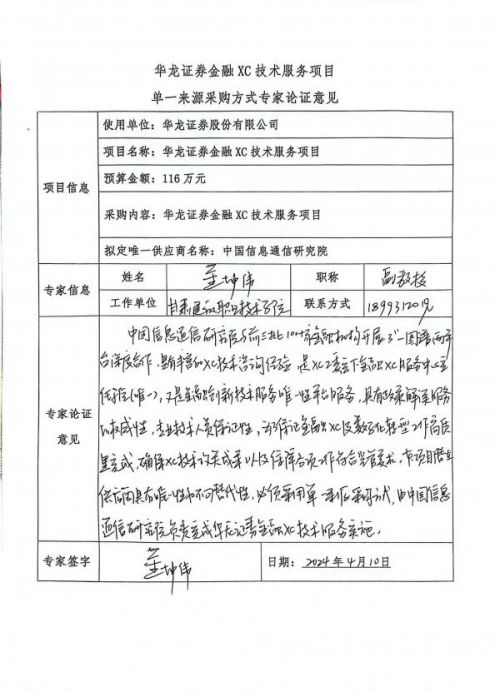 华龙证券金融 XC 技术服务项目
单一来源采购方式专家论证意见
项目信息
使用单位：华龙证券股份有限公司
项目名称：华龙证券金融 XC 技术服务项目
预算金额：116 万元
采购内容：华龙证券金融 XC 技术服务项目
拟定唯一供应商名称：中国信息通信研究院
专家信息
姓名 坤伟 职称 副教授
工作单位 甘肃建筑职业技术学院 联系方式
专家论证
意见
中国信息通信研究院与前三批 金融机构开展了
台深度合作，具有丰富的XC技术咨询经验，是XC工委会下金融XC服务中心主
任单位(唯一)，又是金融创新技术服务唯一性平台服务，具有政策解读服务
的权威性，专业技术人员保证性，为保证金融XC及数字化转型工作高质
量完成，确保XC技术攻关成果以及保障各项工作符合监管要求，本项目
供应商具有唯一性和不可替代性，必须采用单一来源采购方式，由中国信息
通信研究院负责完成华龙证券金融XC技术服务实施。
专家签字 坤伟 日期：2024年4月10日